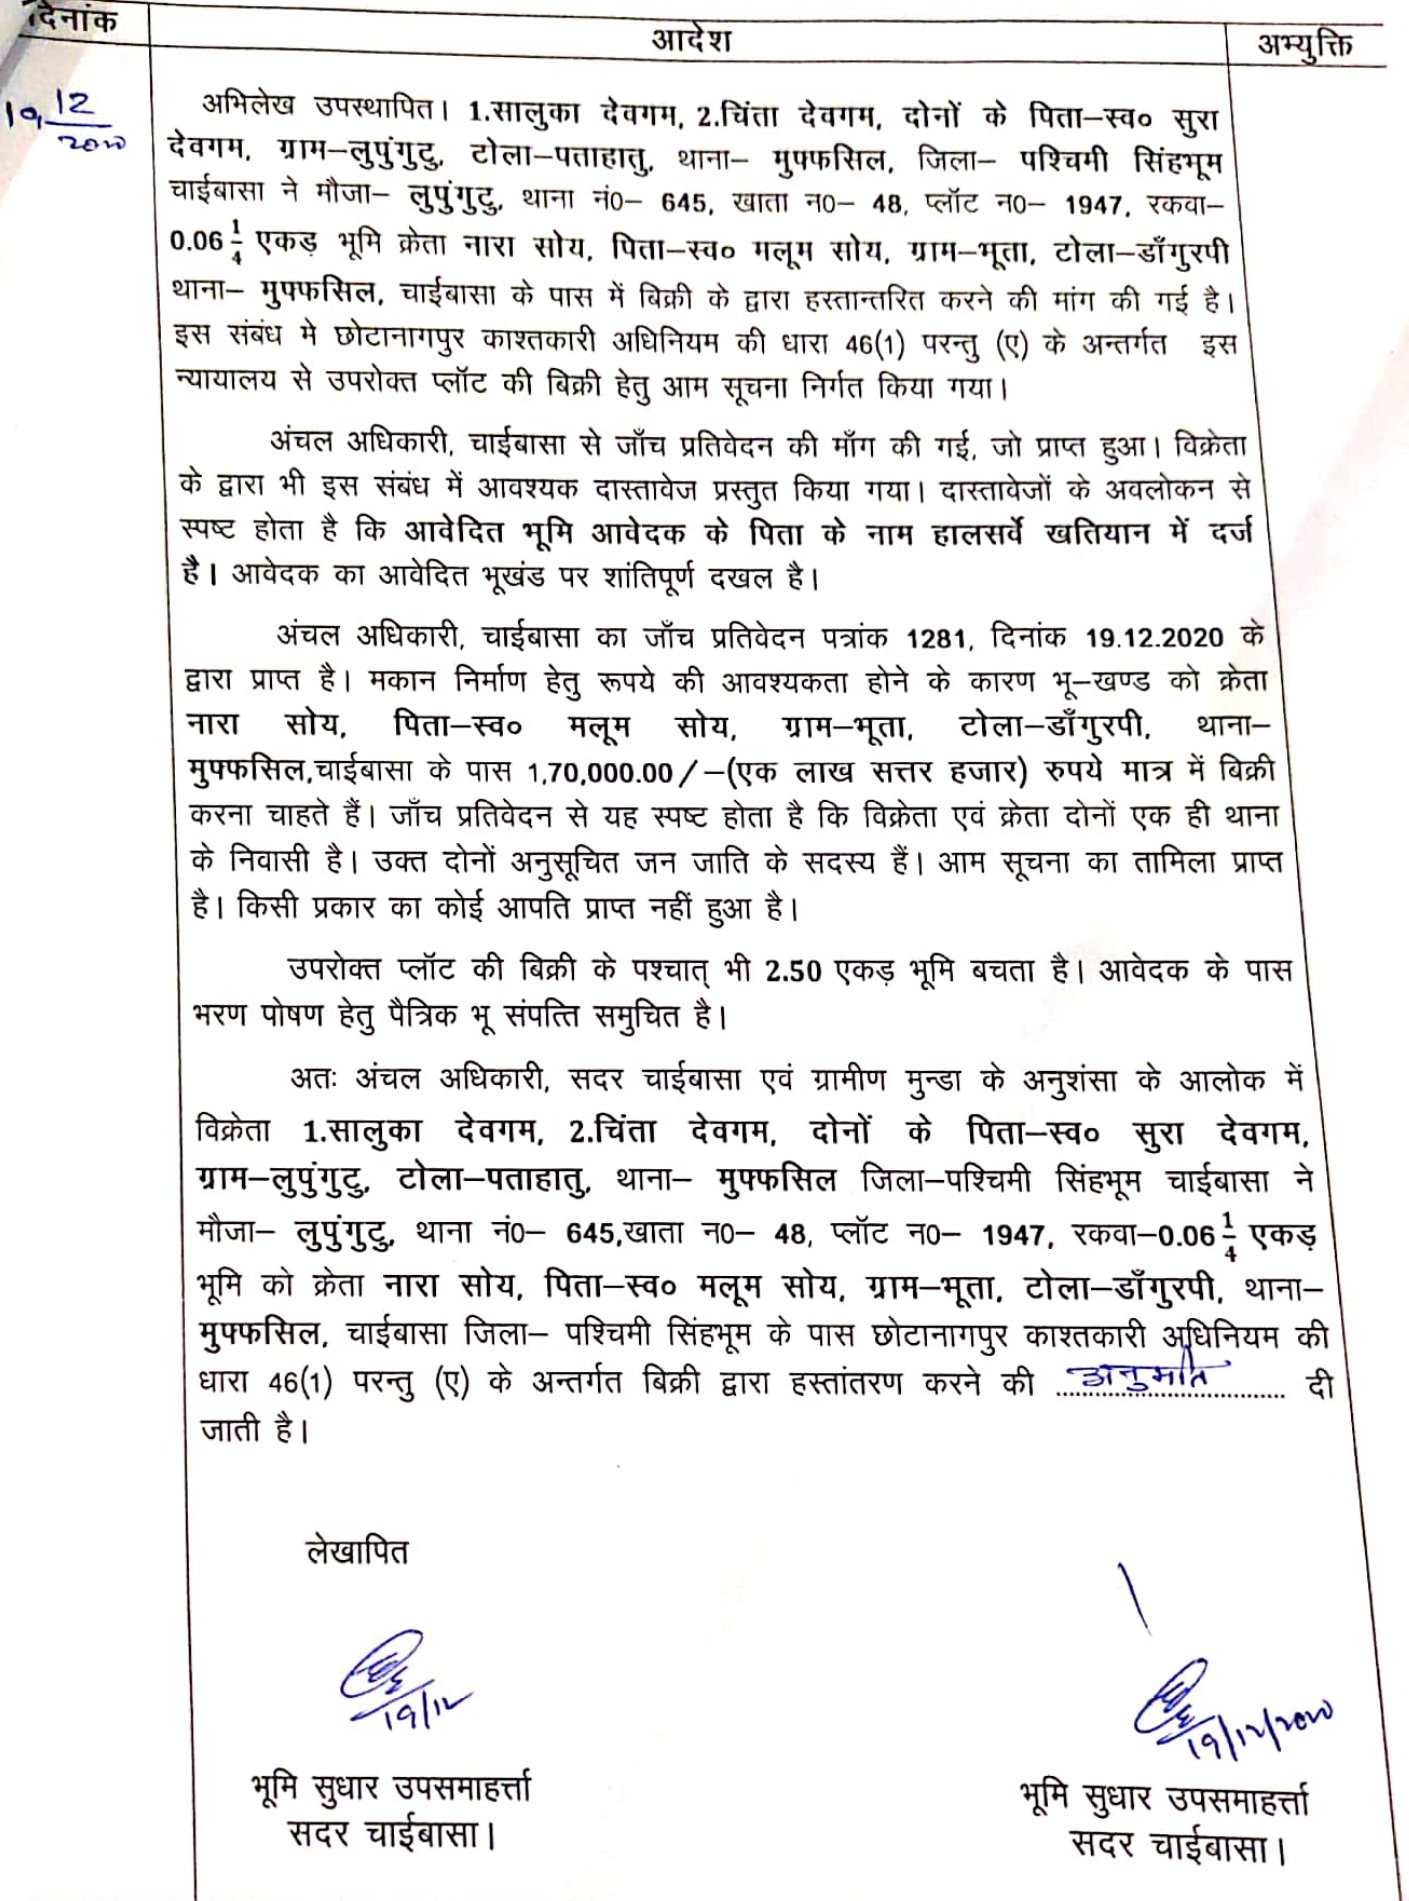 दिनांक
आदेश
अभ्युक्ति
19.12
2020
अभिलेख उपस्थापित। 1.सालुका देवगम, 2.चिंता देवगम, दोनों के पिता–स्व० सुरा
देवगम, ग्राम–लुपुंगुटु, टोला–पताहातु, थाना– मुफ्फसिल, जिला– पश्चिमी सिंहभूम
चाईबासा ने मौजा– लुपुंगुटु, थाना नं0– 645, खाता न0– 48, प्लॉट न0– 1947, रकवा–
0.06 1/4 एकड़ भूमि क्रेता नारा सोय, पिता–स्व० मलूम सोय, ग्राम–भूता, टोला–डाँगुरपी
थाना– मुफ्फसिल, चाईबासा के पास में बिक्री के द्वारा हस्तान्तरित करने की मांग की गई है।
इस संबंध मे छोटानागपुर काश्तकारी अधिनियम की धारा 46(1) परन्तु (ए) के अन्तर्गत इस
न्यायालय से उपरोक्त प्लॉट की बिक्री हेतु आम सूचना निर्गत किया गया।
अंचल अधिकारी, चाईबासा से जाँच प्रतिवेदन की माँग की गई, जो प्राप्त हुआ। विक्रेता
के द्वारा भी इस संबंध में आवश्यक दास्तावेज प्रस्तुत किया गया। दास्तावेजों के अवलोकन से
स्पष्ट होता है कि आवेदित भूमि आवेदक के पिता के नाम हालसर्वे खतियान में दर्ज
है। आवेदक का आवेदित भूखंड पर शांतिपूर्ण दखल है।
अंचल अधिकारी, चाईबासा का जाँच प्रतिवेदन पत्रांक 1281, दिनांक 19.12.2020 के
द्वारा प्राप्त है। मकान निर्माण हेतु रूपये की आवश्यकता होने के कारण भू–खण्ड को क्रेता
नारा सोय, पिता–स्व० मलूम सोय, ग्राम–भूता, टोला–डाँगुरपी, थाना–
मुफ्फसिल,चाईबासा के पास 1,70,000.00/–(एक लाख सत्तर हजार) रुपये मात्र में बिक्री
करना चाहते हैं। जाँच प्रतिवेदन से यह स्पष्ट होता है कि विक्रेता एवं क्रेता दोनों एक ही थाना
के निवासी है। उक्त दोनों अनुसूचित जन जाति के सदस्य हैं। आम सूचना का तामिला प्राप्त
है। किसी प्रकार का कोई आपति प्राप्त नहीं हुआ है।
उपरोक्त प्लॉट की बिक्री के पश्चात् भी 2.50 एकड़ भूमि बचता है। आवेदक के पास
भरण पोषण हेतु पैत्रिक भू संपत्ति समुचित है।
अतः अंचल अधिकारी, सदर चाईबासा एवं ग्रामीण मुन्डा के अनुशंसा के आलोक में
विक्रेता 1.सालुका देवगम, 2.चिंता देवगम, दोनों के पिता–स्व० सुरा देवगम,
ग्राम–लुपुंगुटु, टोला–पताहातु, थाना– मुफ्फसिल जिला–पश्चिमी सिंहभूम चाईबासा ने
मौजा– लुपुंगुटु, थाना नं0– 645,खाता न0– 48, प्लॉट न0– 1947, रकवा–0.06 1/4 एकड़
भूमि को क्रेता नारा सोय, पिता–स्व० मलूम सोय, ग्राम–भूता, टोला–डाँगुरपी, थाना–
मुफ्फसिल, चाईबासा जिला– पश्चिमी सिंहभूम के पास छोटानागपुर काश्तकारी अधिनियम की
धारा 46(1) परन्तु (ए) के अन्तर्गत बिक्री द्वारा हस्तांतरण करने की अनुमति दी
जाती है।
लेखापित
19/12
19/12/2020
भूमि सुधार उपसमाहर्त्ता
सदर चाईबासा।
भूमि सुधार उपसमाहर्त्ता
सदर चाईबासा।